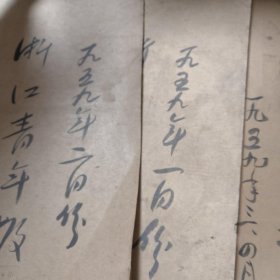 浙江青年报
一九五九年二月份
一九五九年一月份
一九五九年三.四月